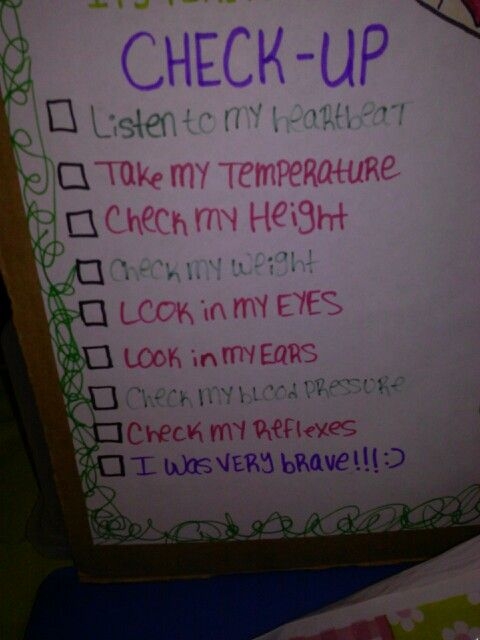 CHECK-UP
Listen to my heartbeat
Take my Temperature
Check my Height
Check my weight
Look in my EYES
Look in my EARS
Check my blood Pressure
Check my Reflexes
I was VERY brave!!! :)